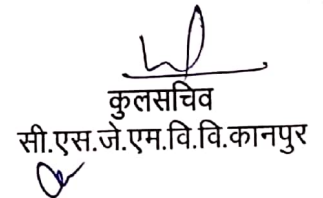 कुलसचिव
सी.एस.जे.एम.वि.वि.कानपुर